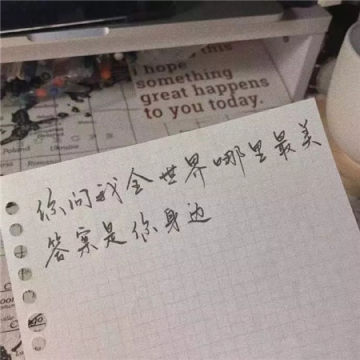 this
i hope
something
great happens
to you today.
你问我全世界哪里最美
答案是你身边